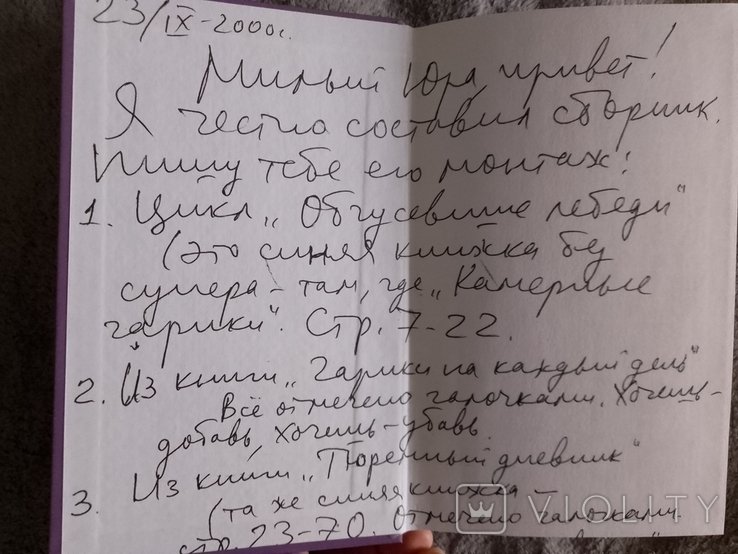 23/IX-2000г.
Милый Юра, привет!
Я честно составил сборник.
Пишу тебе его монтаж:
1. Цикл „Обгусевшие лебеди"
(это синяя книжка без
супера – там, где „Камерные
гарики". Стр. 7-22.
2. Из книги „Гарики на каждый день"
Всё отмечено галочками. Хочешь –
добавь, хочешь – убавь.
3. Из книги „Тюремный дневник"
(та же синяя книжка –
стр. 23-70. Отмечено галочками.
VIOLITY